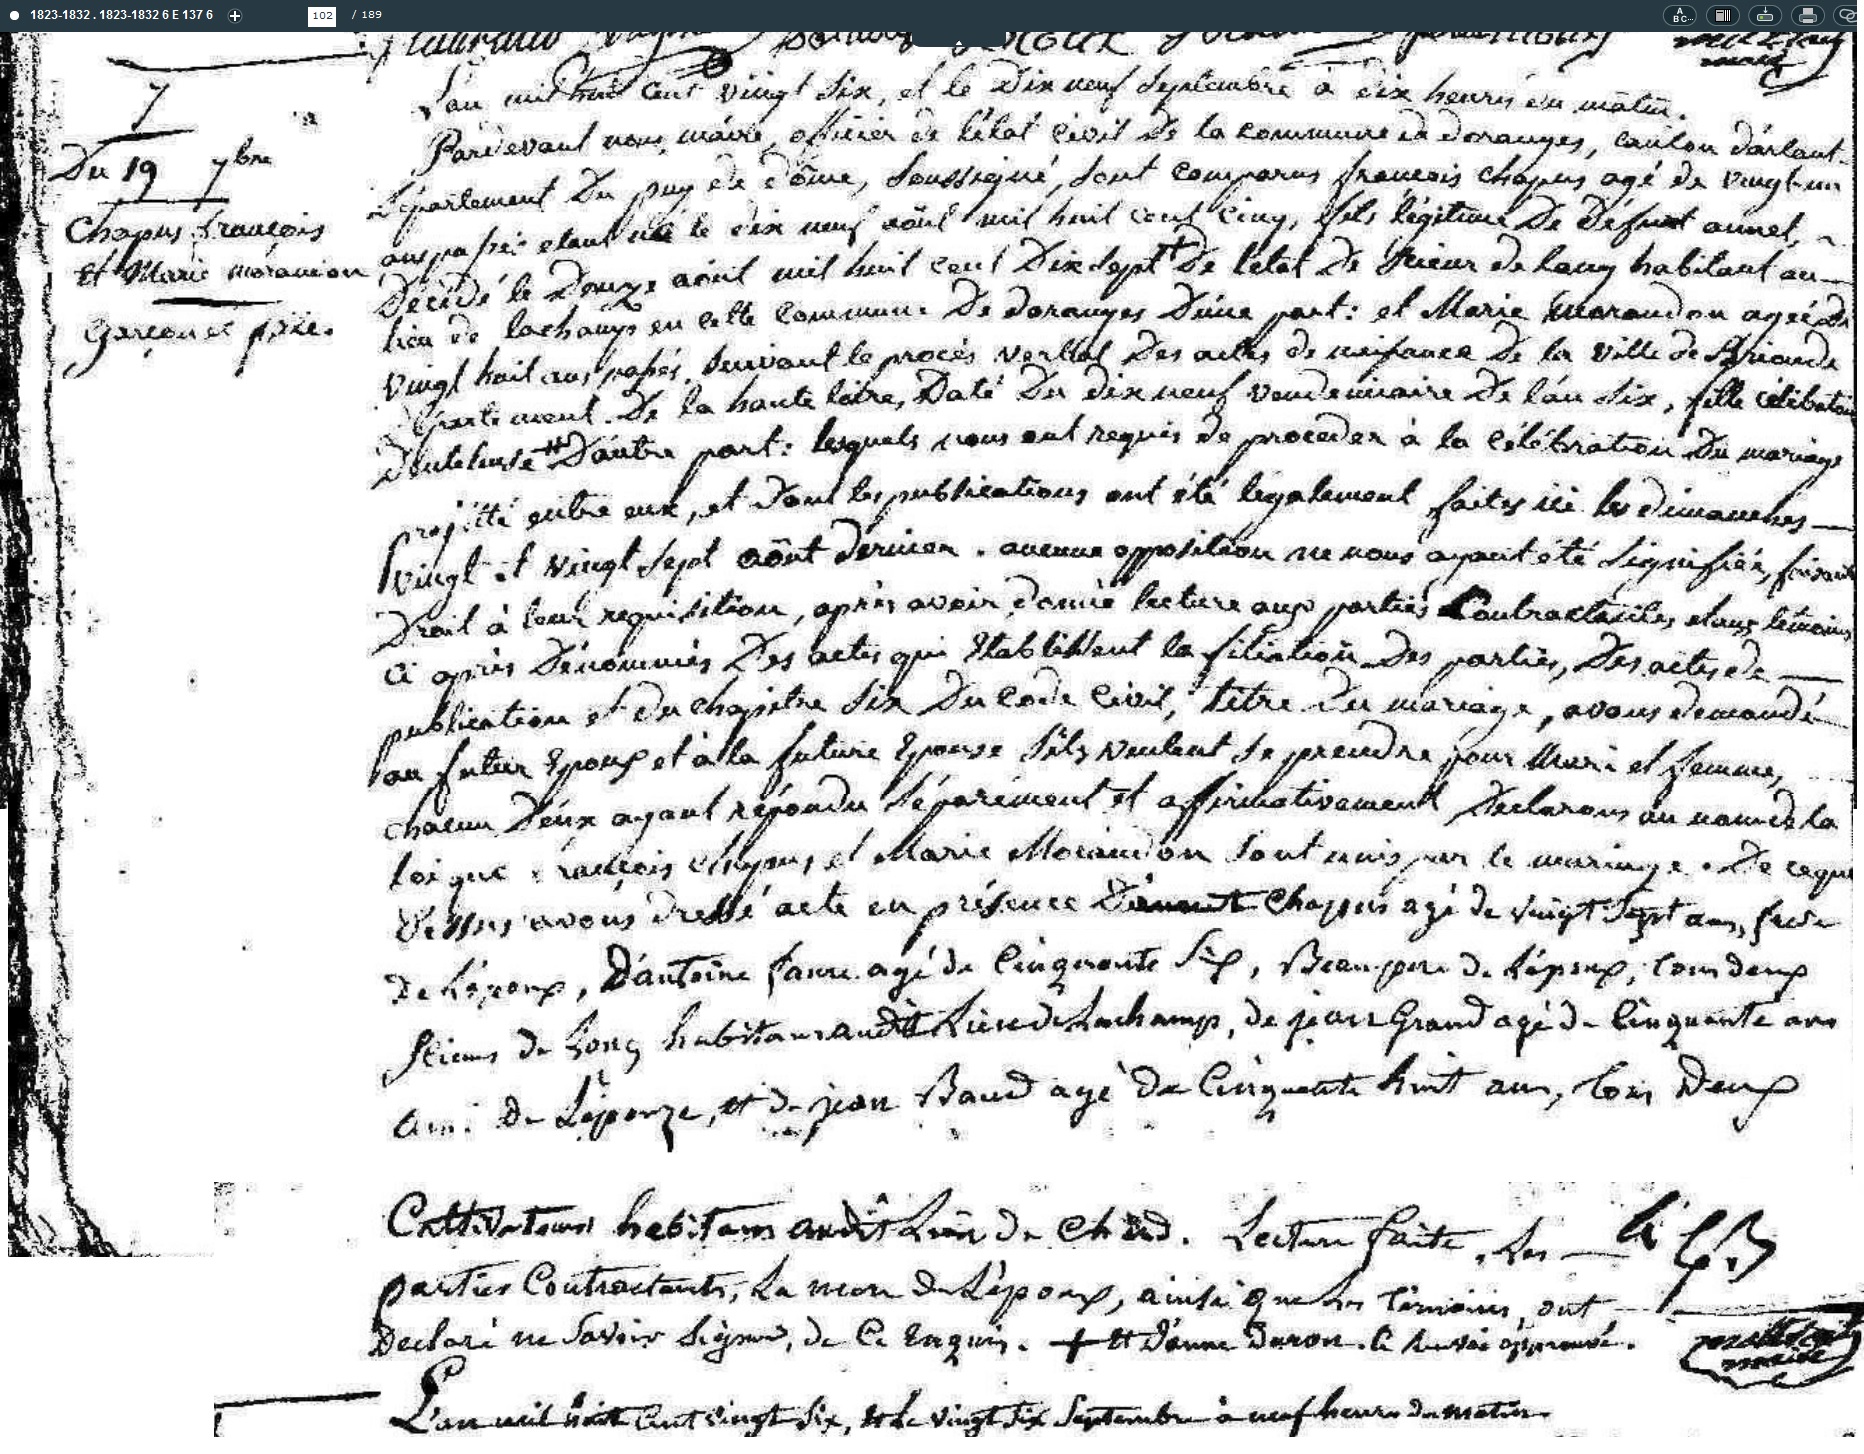 1823-1832 . 1823-1832 6 E 137 6
102 / 189
7
Du 19 7bre
Chapus françois
Et Marie morandon
garçon et fille.
L'an mil huit cent vingt six, et le dix neuf Septembre à dix heures du matin.
Pardevant nous, maire, officier de l'état civil De la commune de doranges, canton d'arlant
Département Du puy de dôme, soussigné, sont comparus françois chapus agé de vingt un
ans passés etant né le dix neuf aôut mil huit cent cinq, fils légitime De Défunt annet,
Décédé le Douze aôut mil huit cent Dix Sept + De l'état De Scieur de Long habitant au
lieu de lachamp en cette commune De doranges D'une part : et Marie Morandon agée De
vingt huit ans passés, suivant le procés verbal Des actes de naissance De la ville de Brioude
Département De la haute loire, Daté Du dix neuf vendemiaire De l'an six, fille célibataire
D'autre part : lesquels nous ont requis de proceder à la célébration Du mariage
projetté entre eux, et Dont les publications ont été légalement faites ici les dimanches
vingt et vingt sept aôut dernier . aucune opposition ne nous ayant été signifiée, faisant
Droit à leur requisition, après avoir donné lecture aux parties Contractantes et aux témoins
ci après Dénommés Des actes qui établissent la filiation Des parties, Des actes de
publication et du chapitre six Du Code Civil, titre Du mariage, avons demandé
au futur Epoux et à la future Epouse s'ils veulent se prendre pour Mari et femme,
chacun D'eux ayant répondu séparément et affirmativement Déclarons au nom de la
loi que françois chapus et Marie Morandon sont unis par le mariage . De ce que
Dessus avons dressé acte en présence D'annet Chapus agé de vingt sept ans, frere
De L'époux, D'antoine faure agé de Cinquante Six, Beau pere de L'époux, tous deux
Scieurs de Long habitans audit Lieu de Lachamp, de jean Grand agé de Cinquante ans
Ami De L'épouze, et de jean Baud agé De Cinquante huit ans, tous Deux
Cultivateurs habitans audit Lieu De . Lecture faite, Les
parties Contractantes, La mere De L'époux, ainsi que les témoins, ont
Declaré ne Savoir Signer, de Ce Enquis. + Et D'anne Duron. le renvoi approuvé.
maire
L'an mil huit Cent vingt Six, et Le vingt Six Septembre à neuf heures du matin